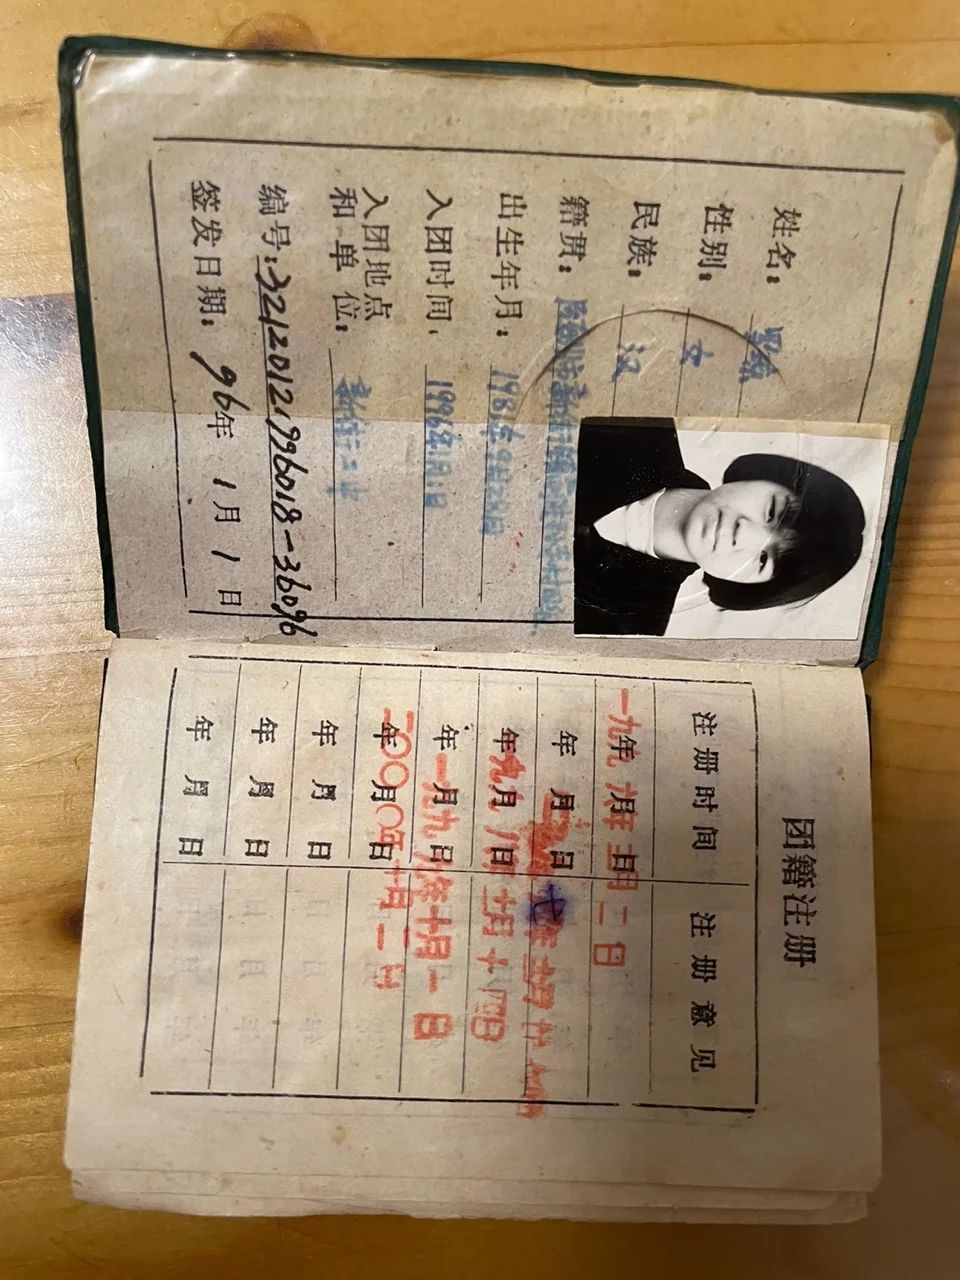 姓名：
性别： 女
民族： 汉
籍贯： 市新街镇
出生年月： 1981年9月28日
入团时间， 1996年1月1日
入团地点
和单位： 新街二中
编号：32120121996018-36096
签发日期： 96年 1月 1日
团籍注册
注册时间 注册意见
年 月 日
一九九六年三月二日
年 月 日
七年 月
年 月 日
一九九八年十月十四日
年 月 日
一九九九年十月一日
年 月 日
二〇〇〇年十月二日
年 月 日
年 月 日
年 月 日